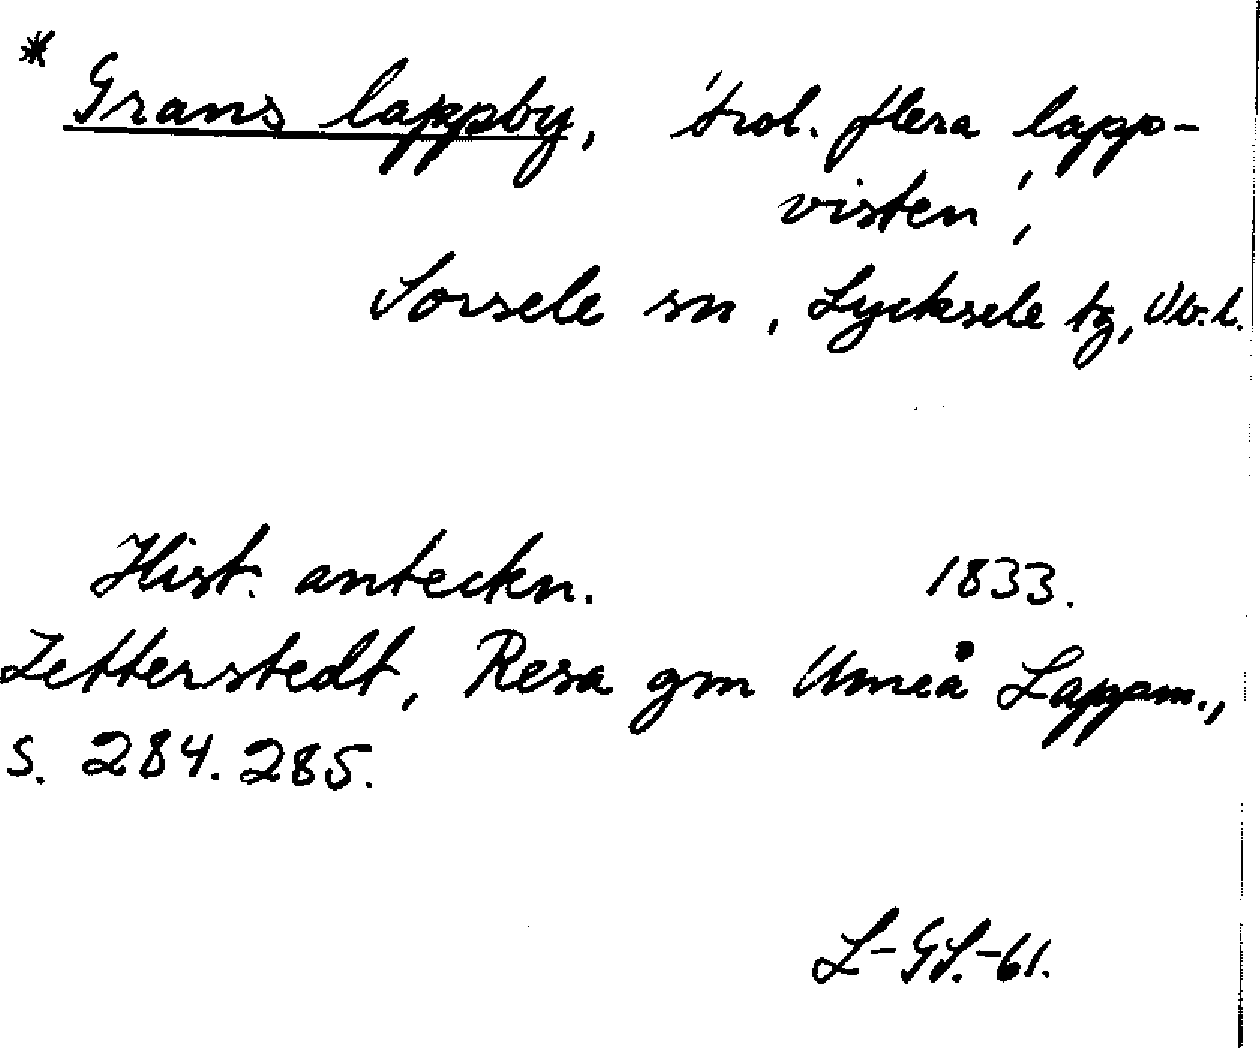 * Grans lappby, 'trol. flera lapp-
visten',
Sorsele sn, Lycksele tg, Vb. l.
Hist. anteckn. 1833.
Zetterstedt, Resa gm Umeå Lappm.,
s. 284. 285.
L-GS.-61.